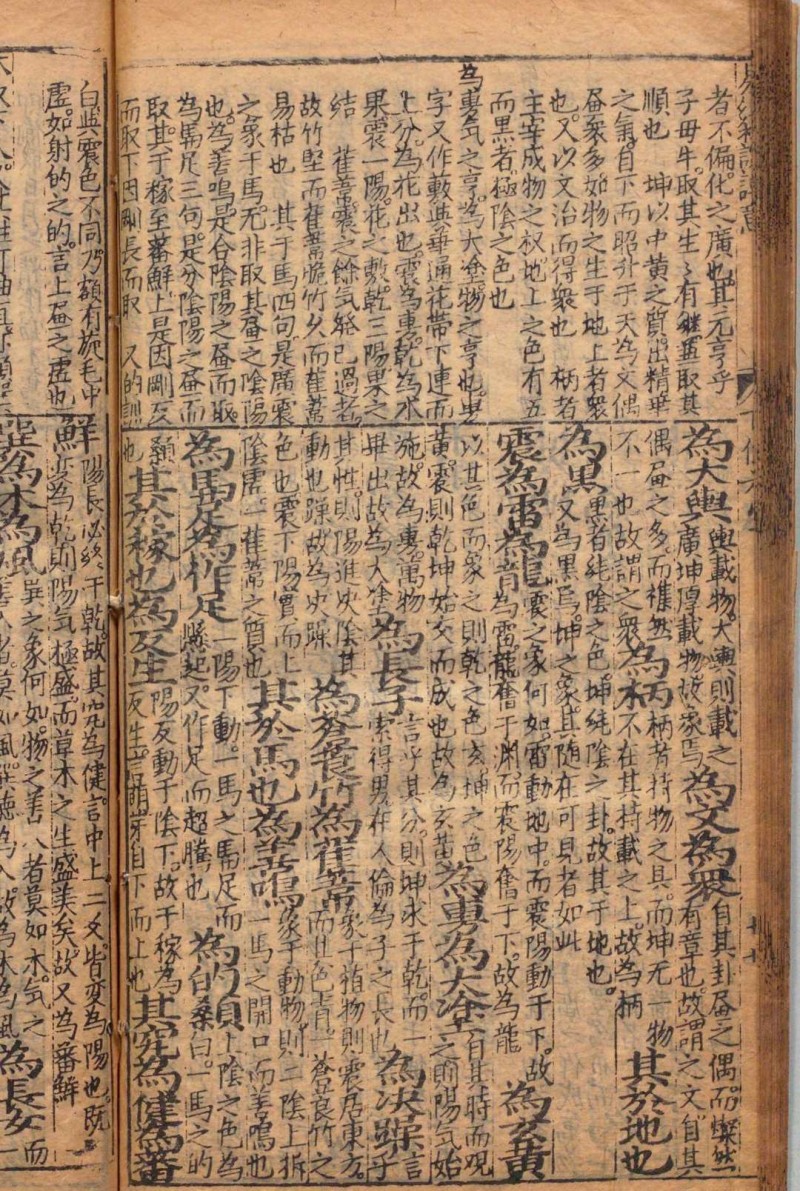 者不偏化之廣也其元亨乎
子毋牛取其生〻有継盖取其
順也 坤以中黄之質出精華
之氣自下而昭升于天為文偶
畫衆多如物之生于地上者衆
也又以文治而得衆也 柄者
主宰成物之权地上之色有五
而黒者極陰之色也
為旉气之亨為大塗物之亨也旉
字又作藪與華通花帶下連而
上分為花出也震為旉乾為木
果震一陽花之敷乾三陽果之
結 萑葦震之餘気發已過者
故竹堅而萑葦脆竹久而萑葦
易枯也 其于馬四句是廣震
之象于馬无非取其畫之陰陽
也為善鳴是合陰陽之畫而取
為馵足三句是分陰陽之畫而
取其于稼至蕃鮮上是因剛反
而取下因剛長而取 又的訓
白與震色不同乃額有旋毛中
虚如射的之的言上畫之虚也
為大輿 輿載物大輿則載之廣坤厚載物故象焉 為文為衆 自其卦畫之偶而燦然有章也故謂之文自其
偶畫之多而雜然不一也故謂之衆 為柄 柄者持物之具而坤无一物不在其持載之上故為柄 其於地也
為黒 黒者純陰之色坤純陰之卦故其于地也又為黒焉坤之象其随在可見者如此
震為雷為龍 震之象何如雷動地中而震陽動于下故為雷龍奮于渊而震陽奮于下故為龍 為玄黄
以其色而象之則乾之色玄坤之色黄震則乾坤始交而成也故為玄黄 為旉為大塗 自其時而观之而陽気始
施故為旉萬物畢出故為大塗 為長子 言乎其分則坤求于乾而一索得男在人倫為子之長也 為决躁 言乎
其性則陽進决陰其動也躁故為决躁 為蒼筤竹為萑葦 象于植物則震居東方而其色青蒼筤竹之
色也震下陽實而上陰虚萑葦之質也 其於馬也為善鳴 象于動物則二陰上拆一馬之開口而善鳴也
為馵足為作足 一陽下動一馬之馵足而懸起又作足而超騰也 為的顙 上陰之色為白一馬之的
顙也 其於稼也為反生 陽反動于陰下故于稼為反生言萌芽自下而上也 其究為健為蕃
鮮 陽長必終于乾故其究為健言中上二爻皆変為陽也既変為乾則陽気極盛而草木之生盛美矣故又為蕃鮮
巽為木為風 巽之象何如物之善入者莫如木气之善入者莫如風巽德為入故為木為風 為長女 而一